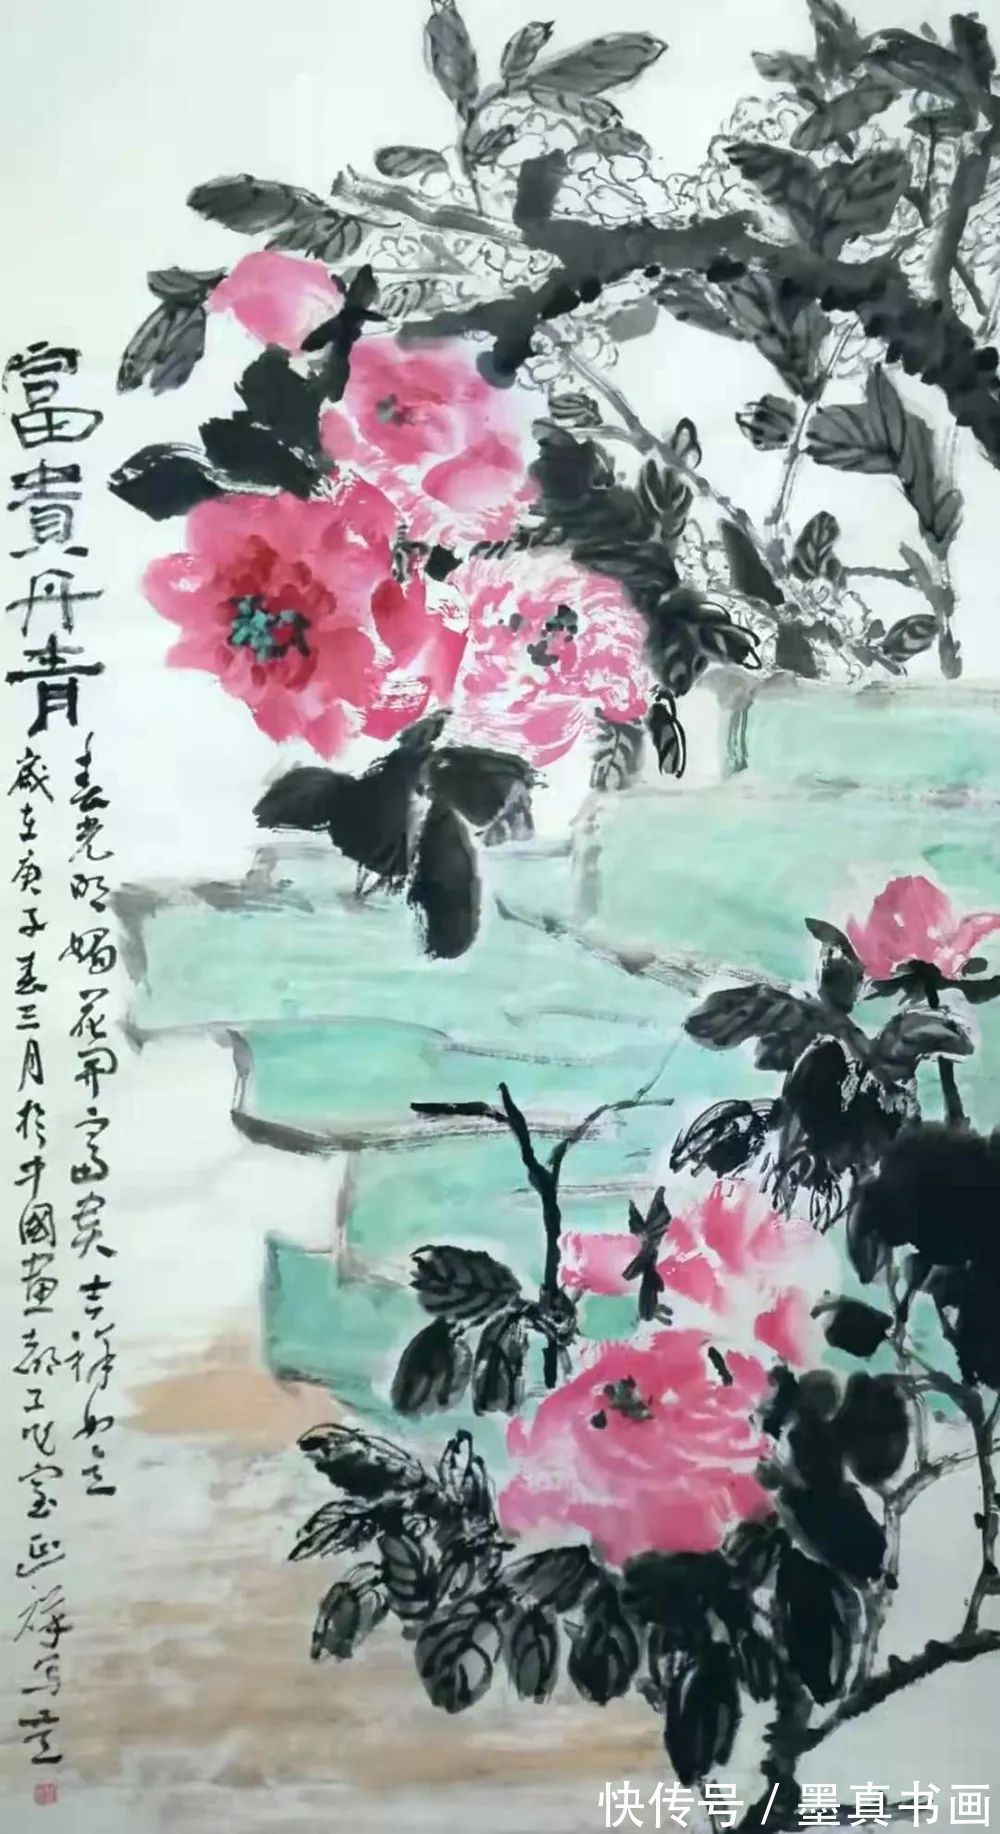 富貴丹青
春光明媚花開富贵吉祥如意
歲在庚子春三月於中國畫都工作室延祥写意
快传号 / 墨真书画